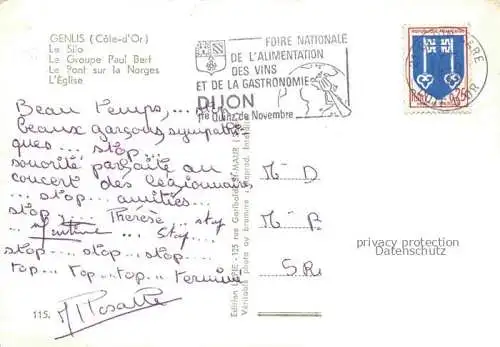 GENLIS (Côte-d'Or)
Le Silo
Le Groupe Paul Bert
Le Pont sur la Norges
L'Église
FOIRE NATIONALE
DE L'ALIMENTATION
DES VINS
ET DE LA GASTRONOMIE
DIJON
1re Quinz. de Novembre
RÉPUBLIQUE FRANÇAISE
0,25
Beau temps, ...
beaux garçons, sympathi
ques ... stop ...
sonorité parfaite au
concert des légionnaires
... stop ... amitiés ...
stop ... Thérèse .. stop
... stop ...
stop ... stop ... stop ...
top ... top ... top ... terminé
M D
M P
S R
privacy protection
Datenschutz
115.
Edition LAPIE - 125 rue Garibaldi - ST-MAUR
Véritable photo au bromure -